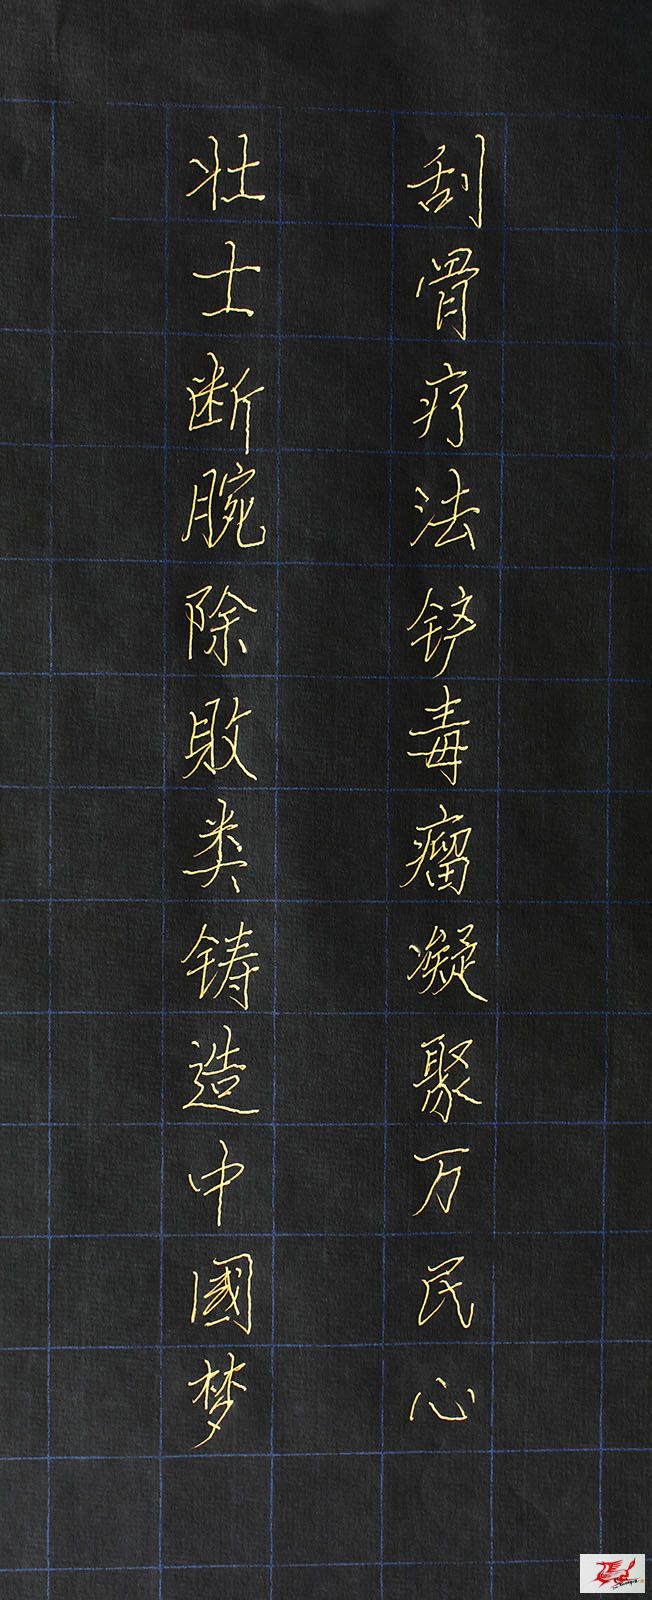 刮骨疗法铲毒瘤凝聚万民心
壮士断腕除敗类铸造中國梦